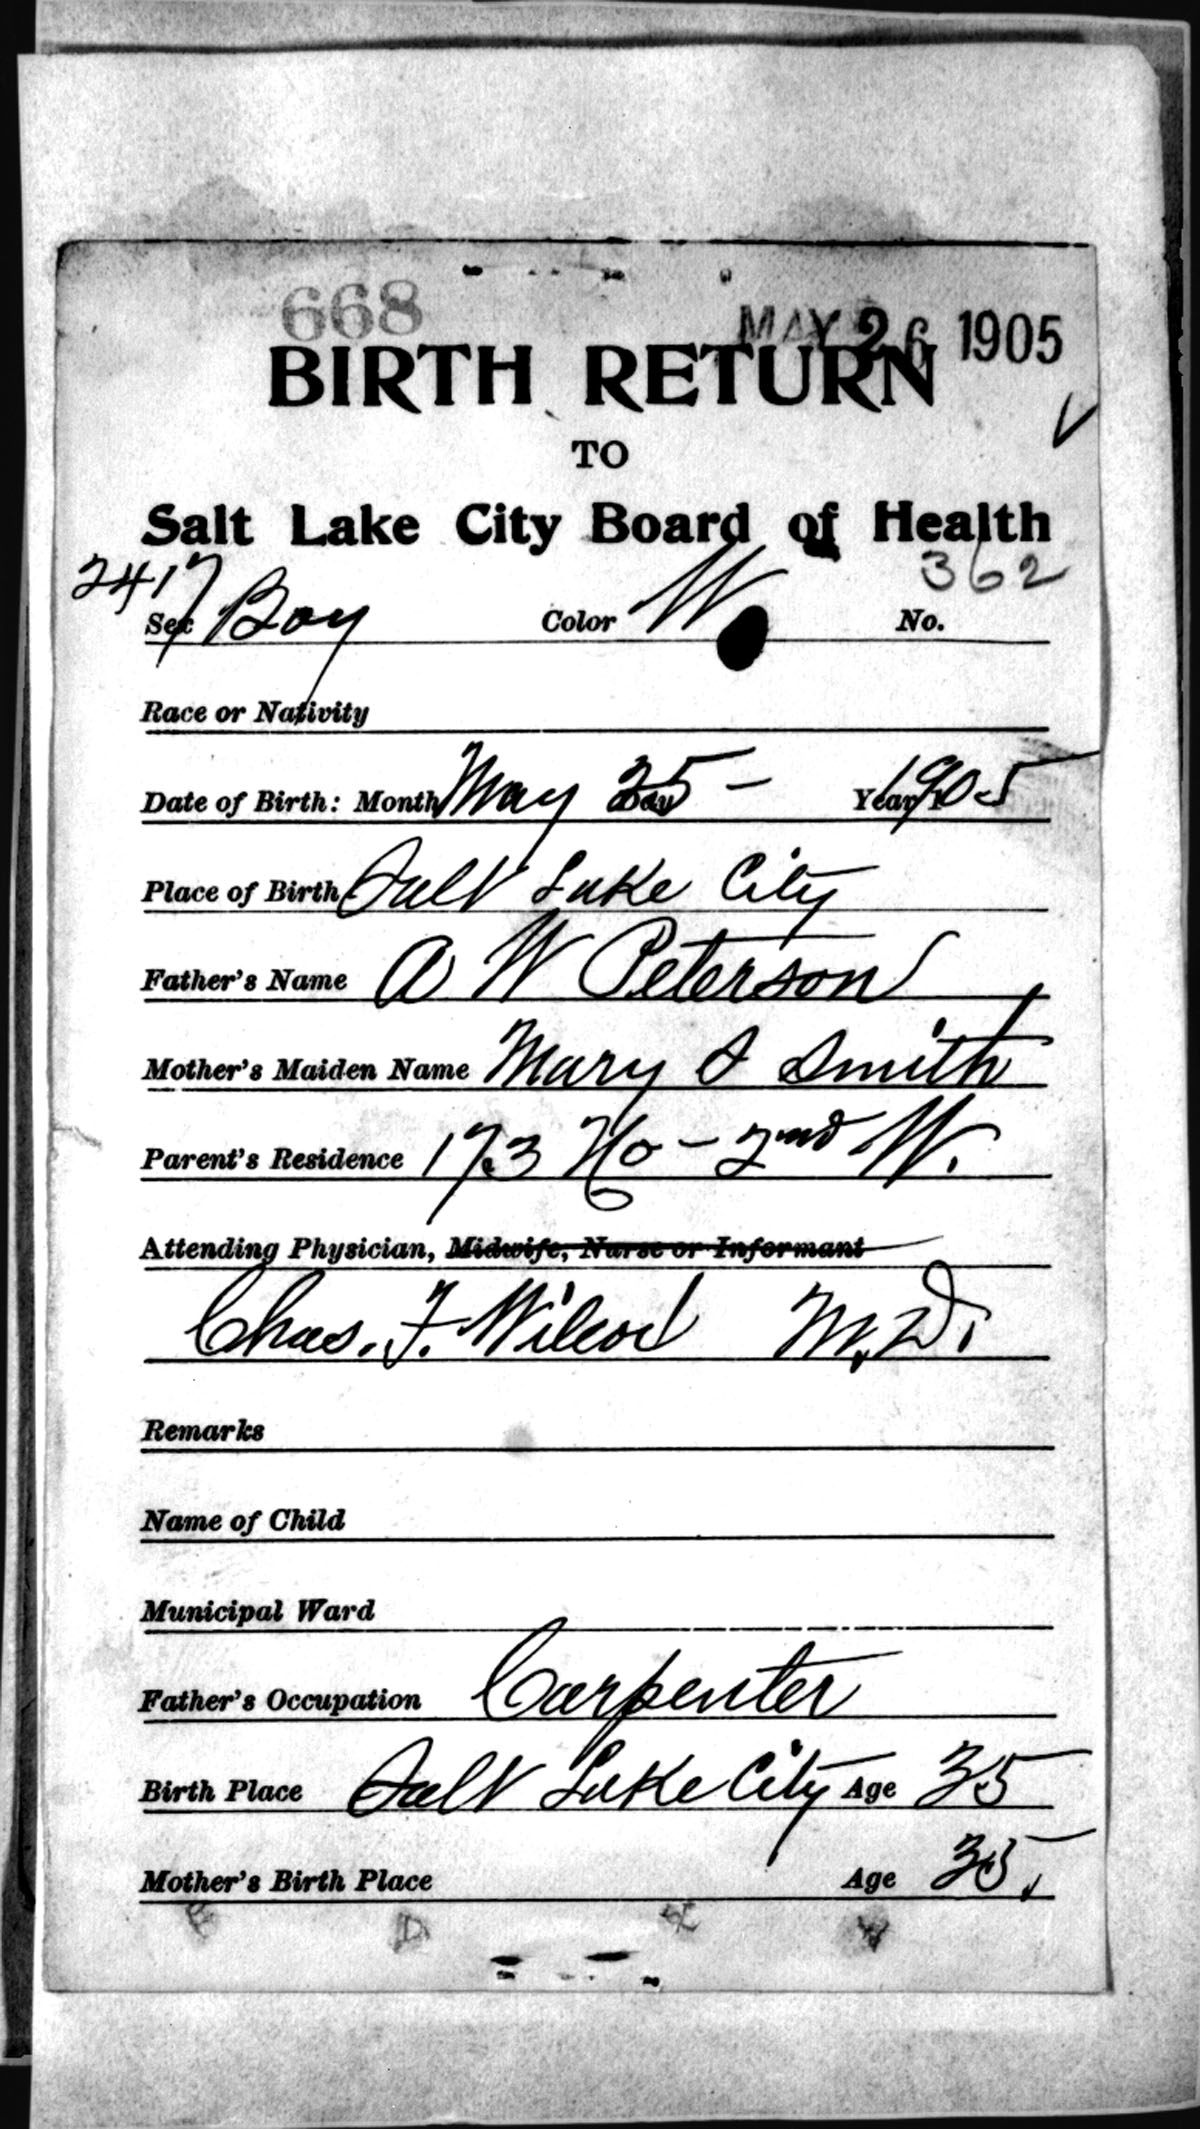 668
MAY 26 1905
BIRTH RETURN
TO
Salt Lake City Board of Health
2417
362
Sex Boy Color W. No.
Race or Nativity
Date of Birth: Month May Day 25 - Year 1905
Place of Birth Salt Lake City
Father's Name A W Peterson
Mother's Maiden Name Mary S Smith
Parent's Residence 173 No - 2nd W.
Attending Physician, Midwife, Nurse or Informant
Chas. F. Wilcox M.D.
Remarks
Name of Child
Municipal Ward
Father's Occupation Carpenter
Birth Place Salt Lake City Age 35
Mother's Birth Place Age 35.